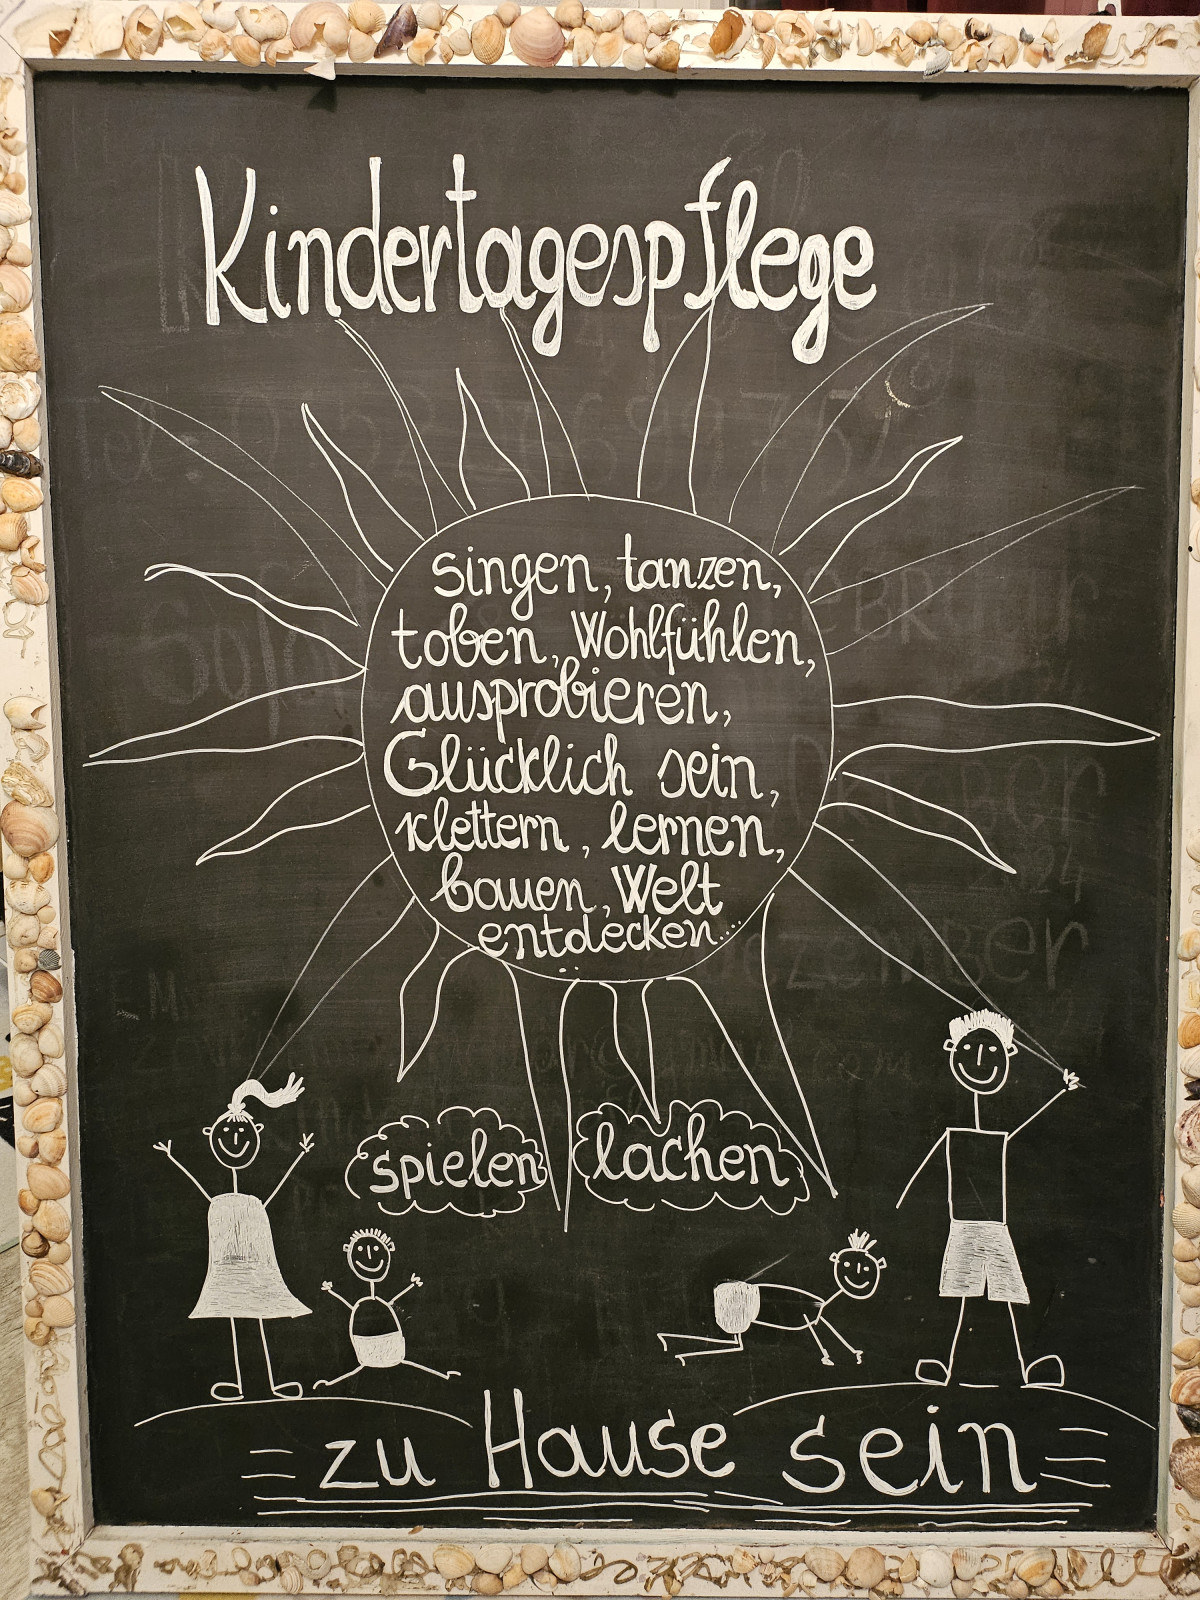 Kindertagespflege
singen, tanzen,
toben, Wohlfühlen,
ausprobieren,
Glücklich sein,
klettern, lernen,
bauen, Welt
entdecken....
spielen
lachen
zu Hause sein